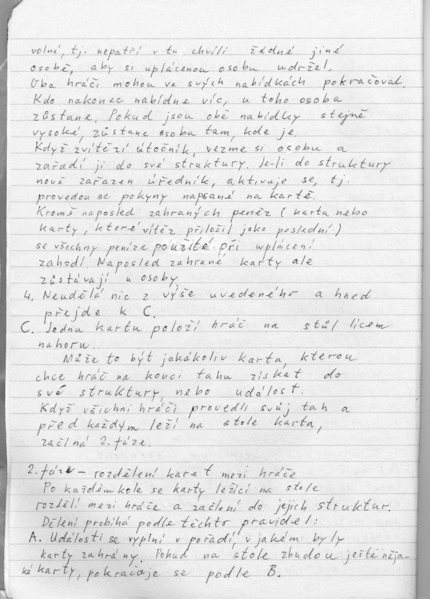 volné, tj. nepatří v tu chvíli žádné jiné
osobě, aby si uplácenou osobu udržel.
Oba hráči mohou ve svých nabídkách pokračovat.
Kdo nakonec nabídne víc, u toho osoba
zůstane. Pokud jsou obě nabídky stejně
vysoké, zůstane osoba tam, kde je.
Když zvítězí útočník, vezme si osobu a
zařadí ji do své struktury. Je-li do struktury
nově zařazen úředník, aktivuje se, tj.
provedou se pokyny napsané na kartě.
Kromě naposled zahraných peněz (karta nebo
karty, které vítěz přiložil jako poslední)
se všechny peníze použité při uplácení
zahodí. Naposled zahrané karty ale
zůstávají u osoby.
4. Neudělá nic z výše uvedeného a hned
přejde k C.
C. Jednu kartu položí hráč na stůl lícem
nahoru.
Může to být jakákoliv karta, kterou
chce hráč na konci tahu získat do
své struktury, nebo událost.
Když všichni hráči provedli svůj tah a
před každým leží na stole karta,
začíná 2. fáze.
2. fáze – rozdělení karet mezi hráče
Po každém kole se karty ležící na stole
rozdělí mezi hráče a začlení do jejich struktur.
Dělení probíhá podle těchto pravidel:
A. Události se vyplní v pořadí, v jakém byly
karty zahrány. Pokud na stole zbudou ještě něja-
ké karty, pokračuje se podle B.